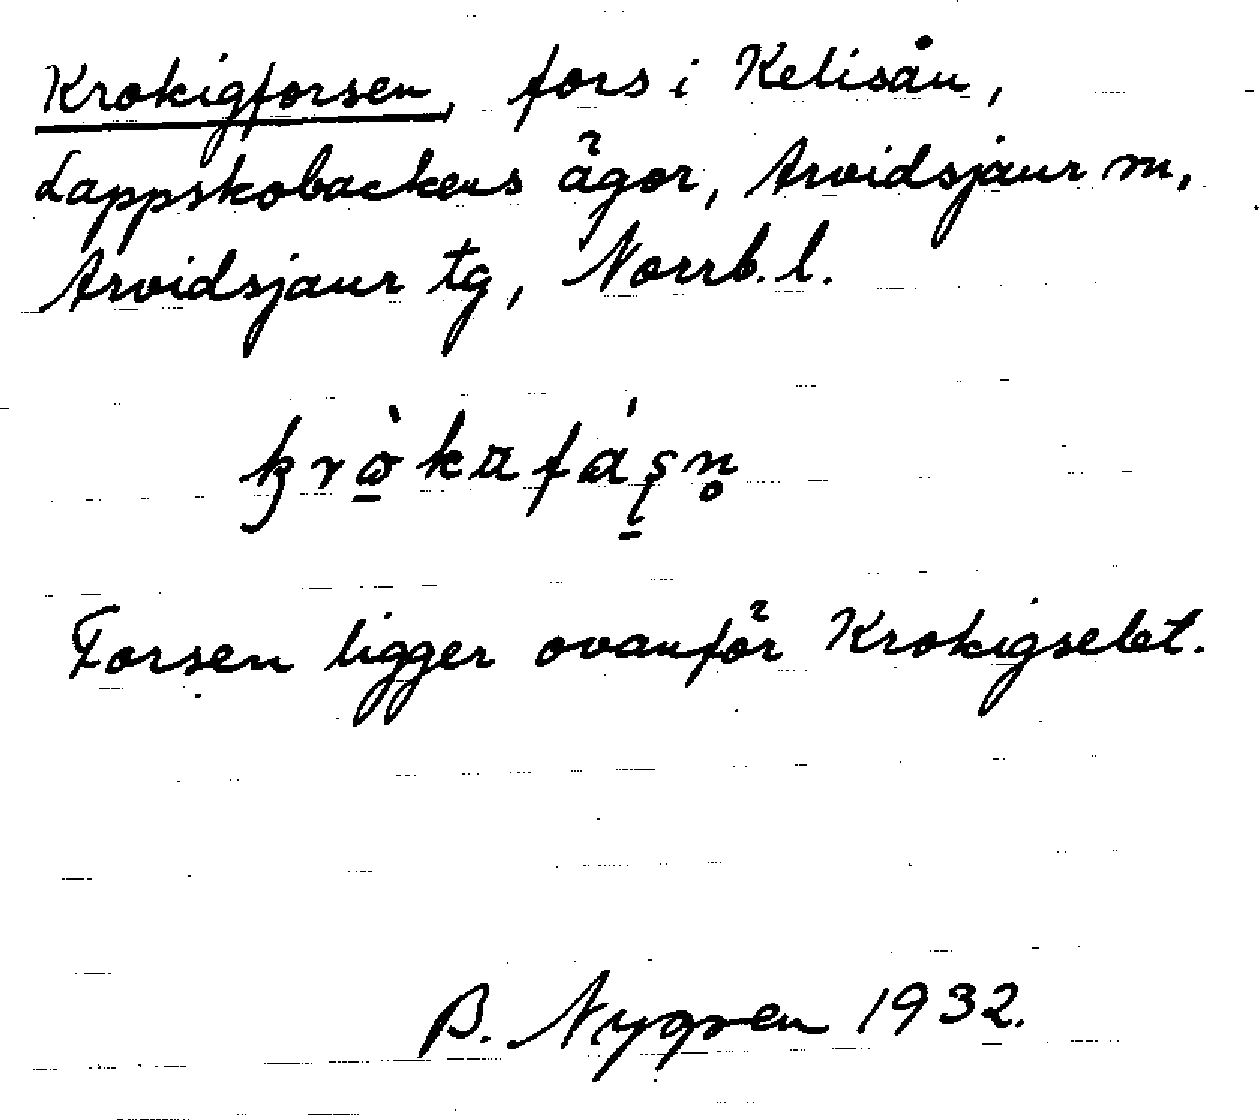 Krokigforsen, fors i Kelisån,
Lappskobackens ägor, Arvidsjaur sn,
Arvidsjaur tg, Norrb. l.
krò̱kafáşn̥
Forsen ligger ovanför Krokigselet.
B. Nygren 1932.